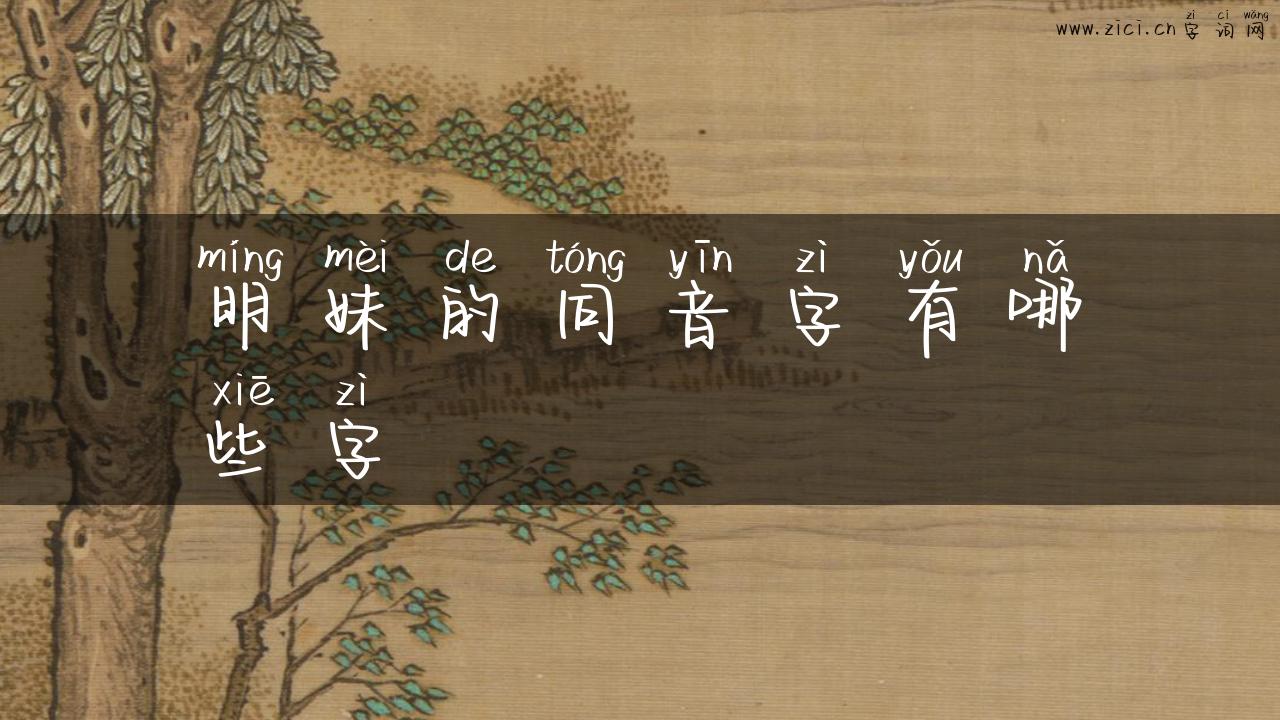 zì cí wǎng
www.zici.cn 字词网
míng mèi de tóng yīn zì yǒu nǎ
明妹的同音字有哪
xiē zì
些字